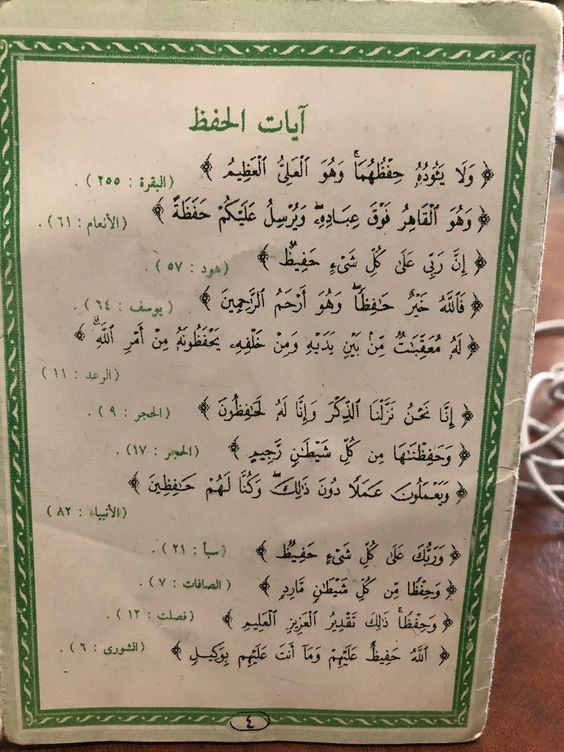 آيات الحفظ
﴿ وَلَا يَـُٔودُهُۥ حِفْظُهُمَا ۚ وَهُوَ الْعَلِيُّ الْعَظِيمُ ﴾ (البقرة : ٢٥٥) .
﴿ وَهُوَ الْقَاهِرُ فَوْقَ عِبَادِهِۦ ۖ وَيُرْسِلُ عَلَيْكُمْ حَفَظَةً ﴾ (الأنعام : ٦١) .
﴿ إِنَّ رَبِّي عَلَىٰ كُلِّ شَىْءٍ حَفِيظٌ ﴾ (هود : ٥٧) .
﴿ فَاللَّهُ خَيْرٌ حَـٰفِظًا ۖ وَهُوَ أَرْحَمُ الرَّٰحِمِينَ ﴾ (يوسف : ٦٤) .
﴿ لَهُۥ مُعَقِّبَـٰتٌ مِّنۢ بَيْنِ يَدَيْهِ وَمِنْ خَلْفِهِۦ يَحْفَظُونَهُۥ مِنْ أَمْرِ اللَّهِ ۗ ﴾
(الرعد : ١١) .
﴿ إِنَّا نَحْنُ نَزَّلْنَا الذِّكْرَ وَإِنَّا لَهُۥ لَحَـٰفِظُونَ ﴾ (الحجر : ٩) .
﴿ وَحَفِظْنَـٰهَا مِن كُلِّ شَيْطَـٰنٍ رَّجِيمٍ ﴾ (الحجر : ١٧) .
﴿ وَيَعْمَلُونَ عَمَلًا دُونَ ذَٰلِكَ ۖ وَكُنَّا لَهُمْ حَـٰفِظِينَ ﴾
(الأنبياء : ٨٢) .
﴿ وَرَبُّكَ عَلَىٰ كُلِّ شَىْءٍ حَفِيظٌ ﴾ (سبأ : ٢١) .
﴿ وَحِفْظًا مِّن كُلِّ شَيْطَـٰنٍ مَّارِدٍ ﴾ (الصافات : ٧) .
﴿ وَحِفْظًا ۚ ذَٰلِكَ تَقْدِيرُ الْعَزِيزِ الْعَلِيمِ ﴾ (فصلت : ١٢) .
﴿ اللَّهُ حَفِيظٌ عَلَيْهِمْ وَمَآ أَنتَ عَلَيْهِم بِوَكِيلٍ ﴾ (الشورى : ٦) .
٤